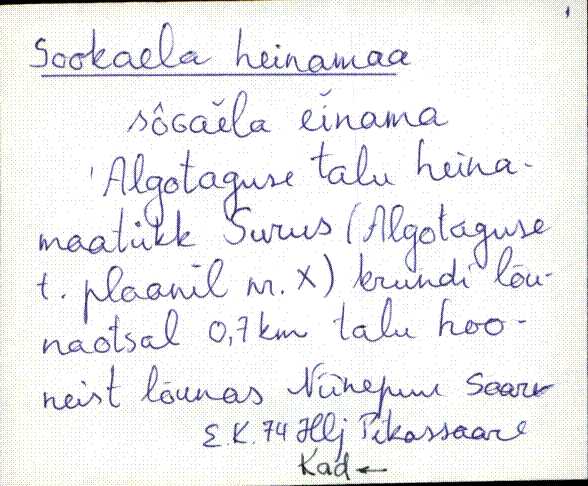 Sookaela heinamaa
sôGaĕla eĭnama
'Algotaguse talu heina-
maatükk Surus (Algotaguse
t. plaanil nr. X) krundi lõu-
naotsal 0,7 km talu hoo-
neist lõunas Niinepuu Saare
E.K. 74 Hlj Pikassaare
Kad ←
1